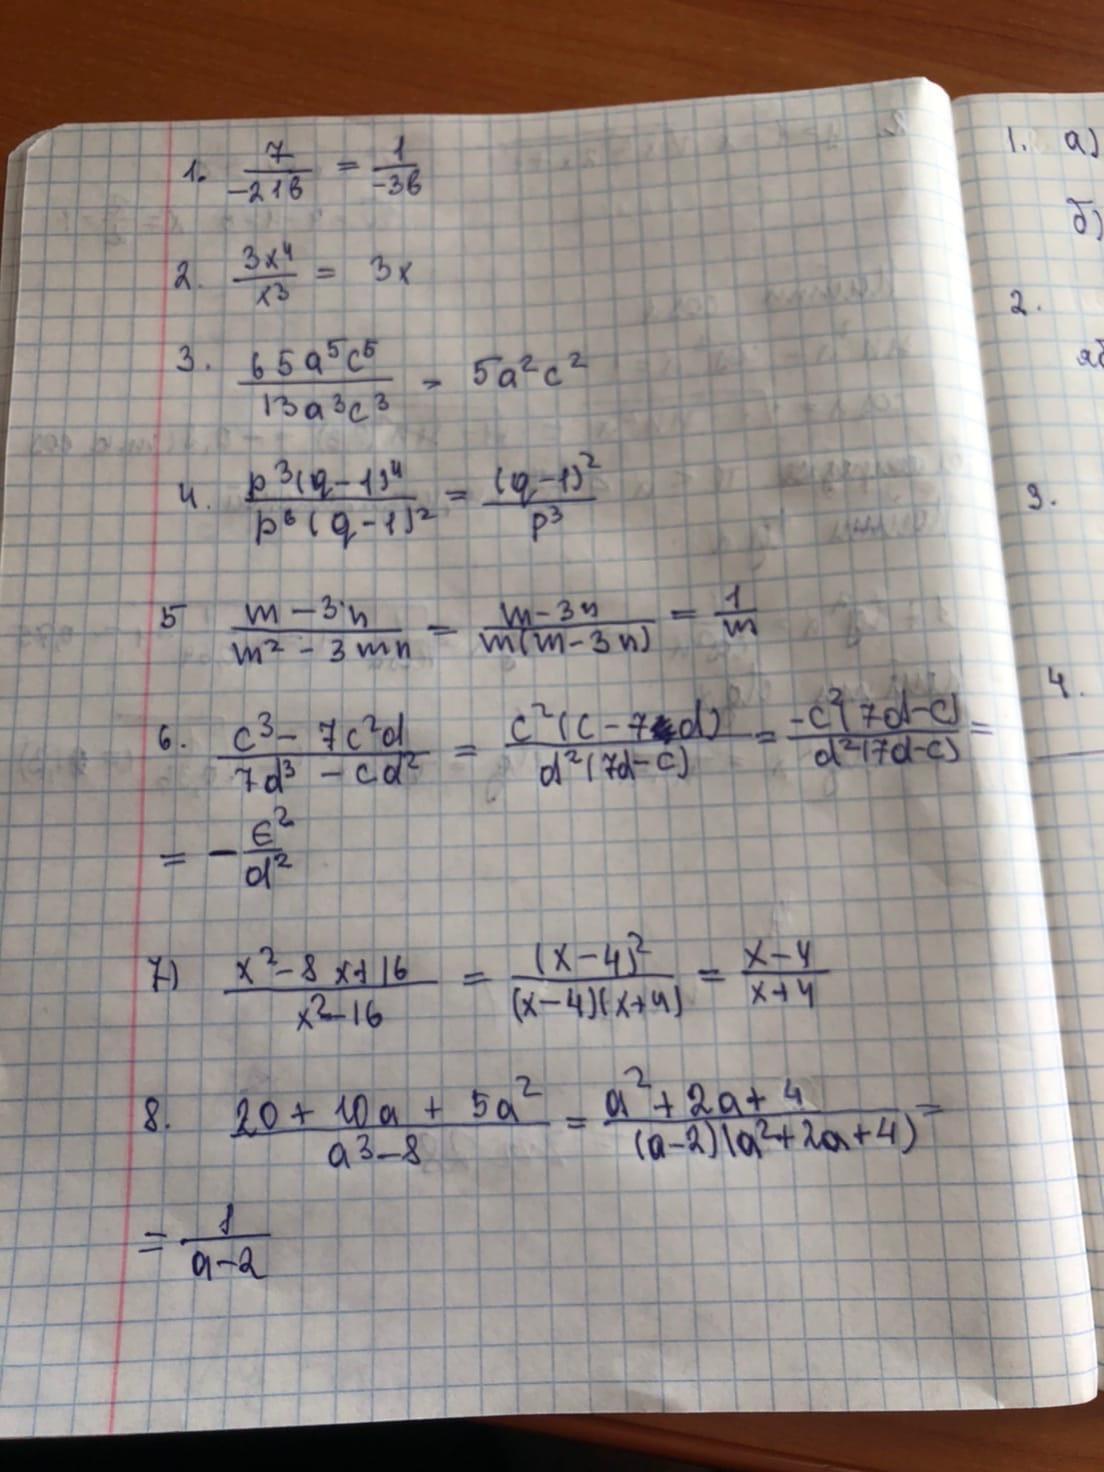 1. 7/-21в = 1/-3в
2. 3x⁴/x³ = 3x
3. 65a⁵c⁵/13a³c³ = 5a²c²
4. p³(q-1)⁴/p⁶(q-1)² = (q-1)²/p³
5 m-3n/m²-3mn = m-3n/m(m-3n) = 1/m
6. c³-7c²d/7d³-cd² = c²(c-7d)/d²(7d-c) = -c²(7d-c)/d²(7d-c) =
= -c²/d²
7) x²-8x+16/x²-16 = (x-4)²/(x-4)(x+4) = x-4/x+4
8. 20+10a+5a²/a³-8 = a²+2a+4/(a-2)(a²+2a+4) =
= 1/a-2
1. а)
б)
2.
3.
4.